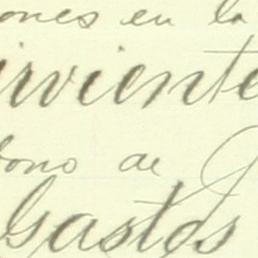 ones en la
irviente
ono de
Gastos